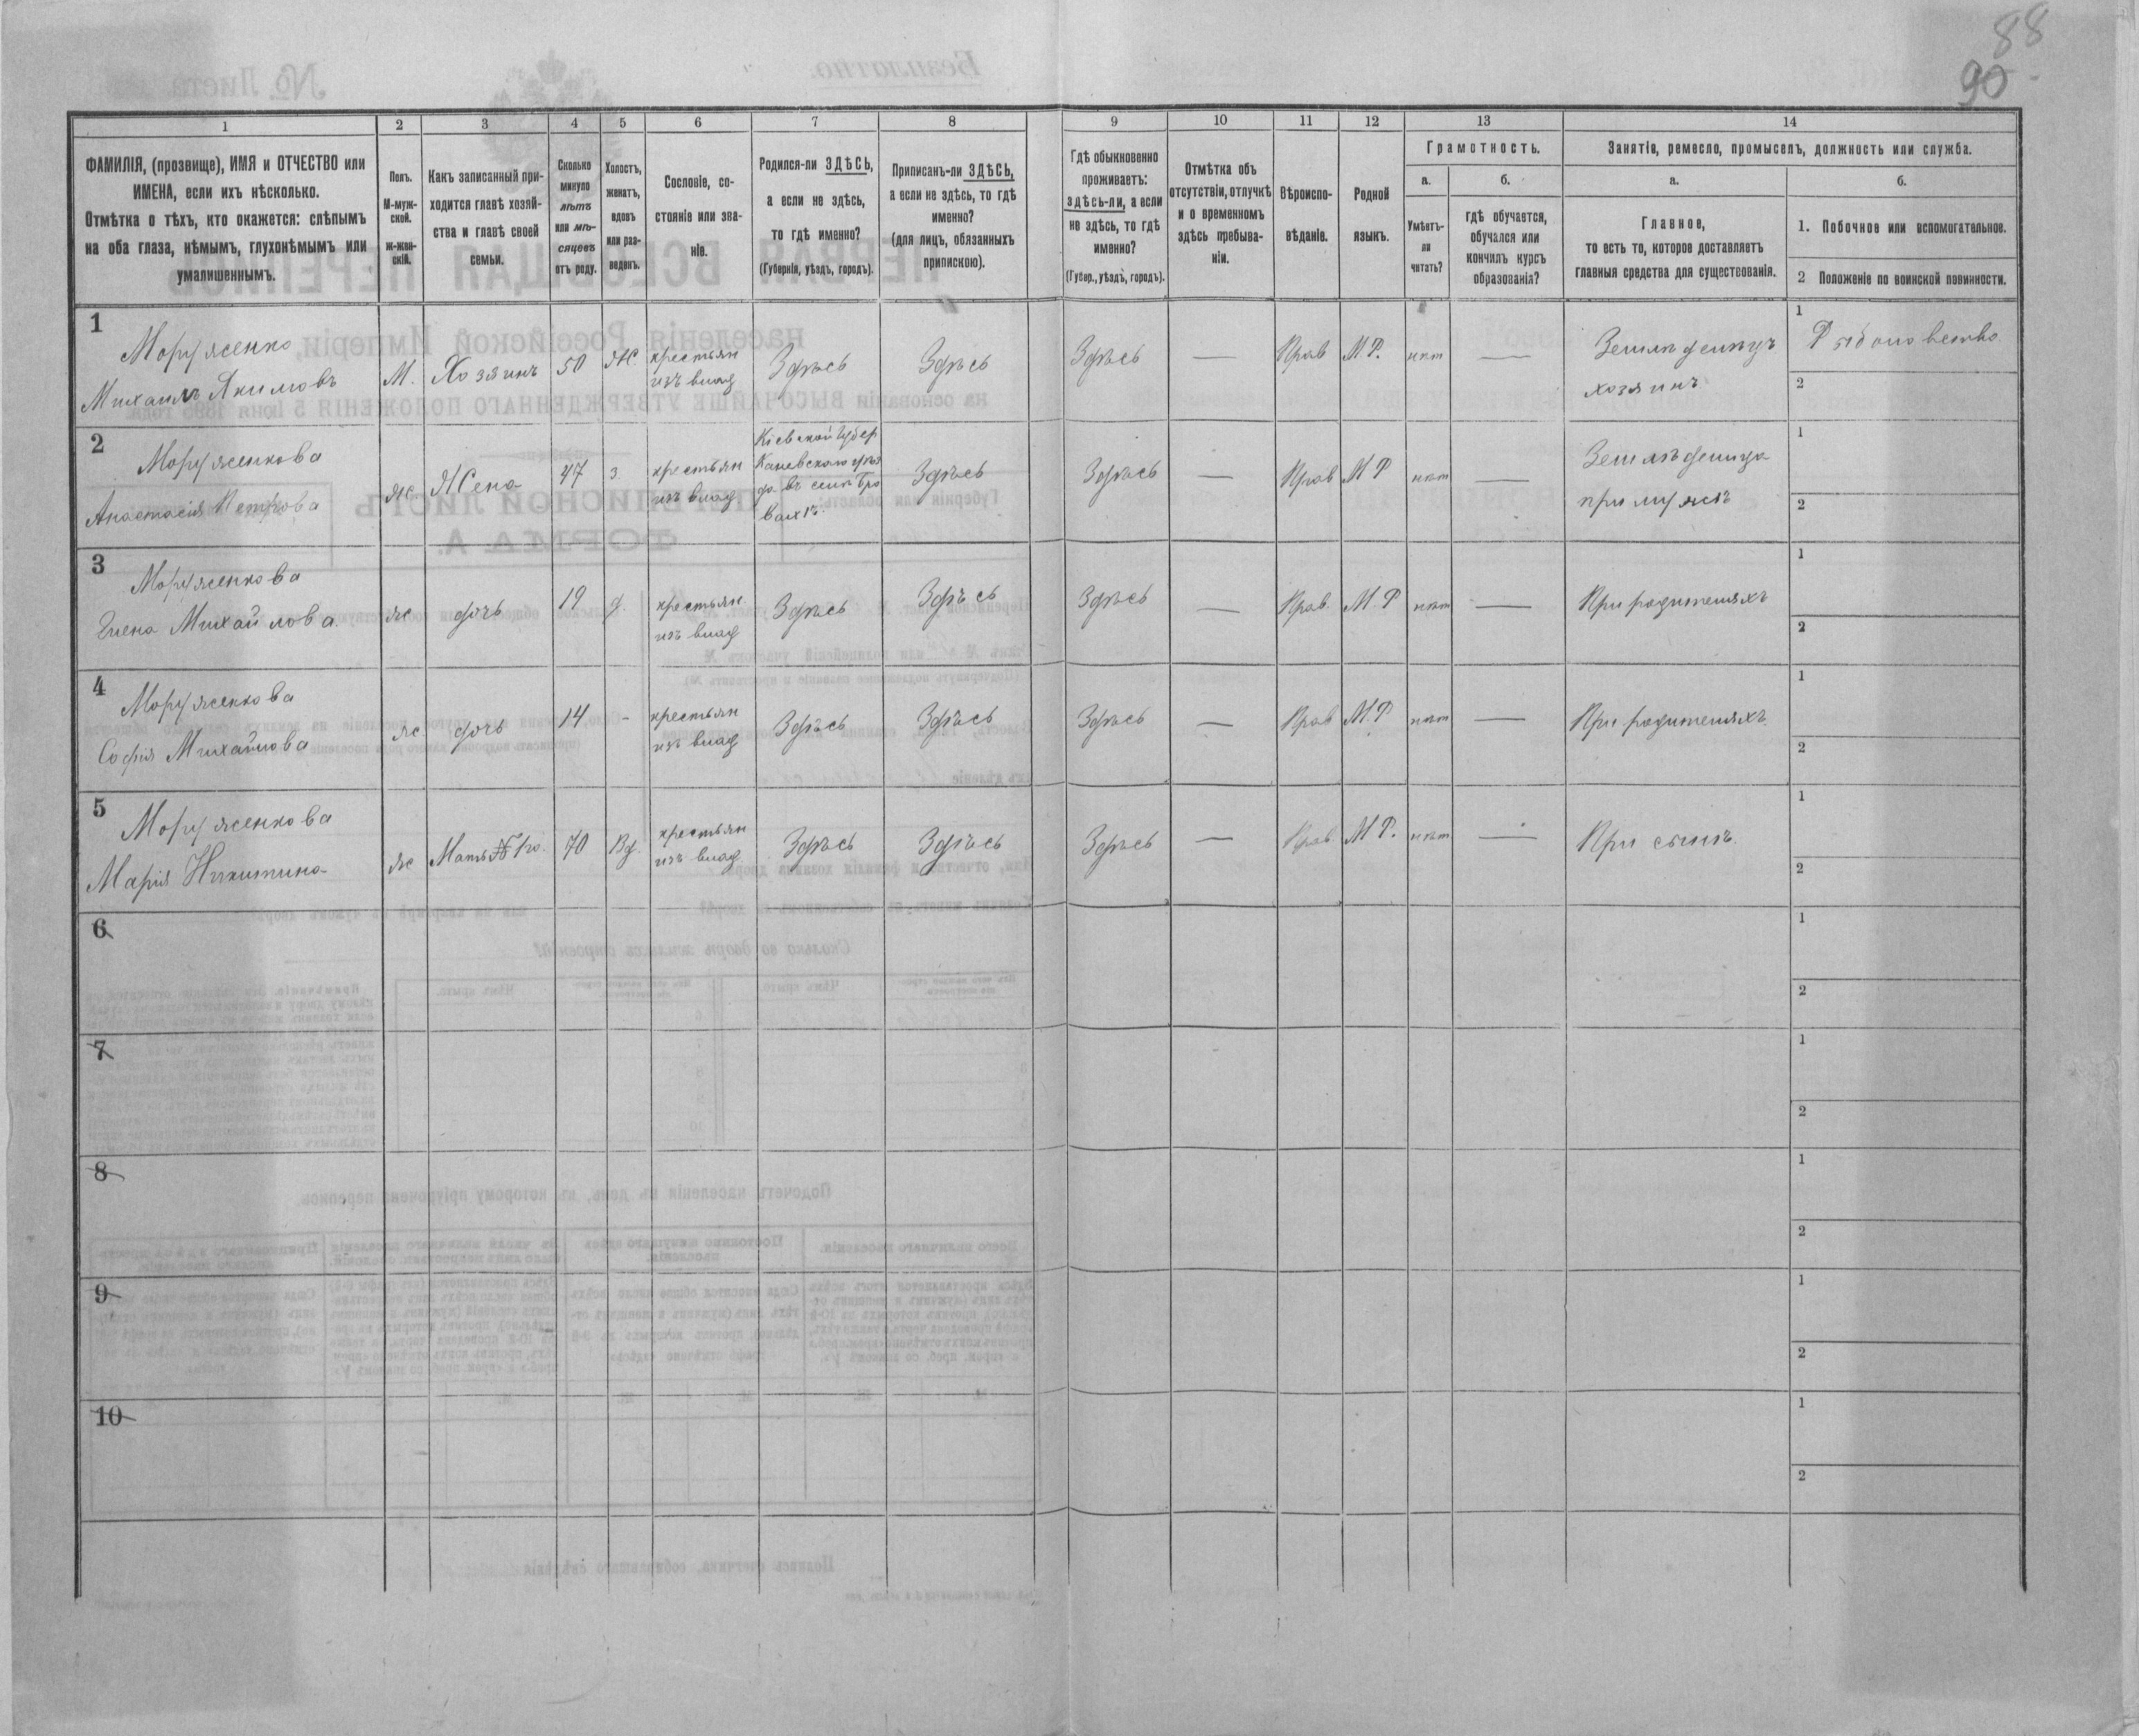 88
90
1 2 3 4 5 6 7 8 9 10 11 12 13 14
ФАМИЛІЯ, (прозвище), ИМЯ и ОТЧЕСТВО или
ИМЕНА, если ихъ нѣсколько.
Отмѣтка о тѣхъ, кто окажется: слѣпымъ
на оба глаза, нѣмымъ, глухонѣмымъ или
умалишеннымъ.
Полъ.
М-муж-
ской.
ж-жен-
скій.
Какъ записанный при-
ходится главѣ хозяй-
ства и главѣ своей
семьи.
Сколько
минуло
лѣтъ
или мѣ-
сяцевъ
отъ роду.
Холостъ,
женатъ,
вдовъ
или раз-
веденъ.
Сословіе, со-
стояніе или зва-
ніе.
Родился-ли ЗДѢСЬ,
а если не здѣсь,
то гдѣ именно?
(Губернія, уѣздъ, городъ).
Приписанъ-ли ЗДѢСЬ,
а если не здѣсь, то гдѣ
именно?
(для лицъ, обязанныхъ
припискою).
Гдѣ обыкновенно
проживаетъ:
здѣсь-ли, а если
не здѣсь, то гдѣ
именно?
(Губер., уѣздъ, городъ).
Отмѣтка объ
отсутствіи, отлучкѣ
и о временномъ
здѣсь пребыва-
ніи.
Вѣроиспо-
вѣданіе.
Родной
языкъ.
Грамотность.
а.
Умѣетъ-
ли
читать?
б.
гдѣ обучается,
обучался или
кончилъ курсъ
образованія?
Занятіе, ремесло, промыселъ, должность или служба.
а.
Главное,
то есть то, которое доставляетъ
главныя средства для существованія.
б.
1. Побочное или вспомогательное.
2 Положеніе по воинской повинности.
1
Моружсенко
Михаилъ Якимовъ
М.
Хозяинъ
50
Ж.
крестьян
изъ влад
Здѣсь
Здѣсь
Здѣсь
—
Прав
М Р.
нѣт
—
Земледѣлецъ
хозяинъ
1
2
2
Анастасія Петрова
ж.
Жена
47
з
крестьян
изъ влад
Кіевской Губер
Каневскаго уѣз
Здѣсь
Здѣсь
—
Прав
М Р
нѣт
—
при мужѣ
1
2
3
Елена Михайлова.
ж
дочь
19
д.
крестьян.
изъ влад
Здѣсь
Здѣсь
Здѣсь
—
Прав.
М Р
нѣт
—
При родителяхъ
1
2
4
Софія Михайлова
ж
дочь
14
-
крестьян
изъ влад
Здѣсь
Здѣсь
Здѣсь
—
Прав
М. Р
нѣт
—
При родителяхъ
1
2
5
Марія Никитина
ж
Мать № 1го.
70
Вд.
крестьян
изъ влад
Здѣсь
Здѣсь
Здѣсь
—
Прав.
М Р.
нѣт
—
При сынѣ.
1
2
6
1
2
7
1
2
8
1
2
9
1
2
10
1
2